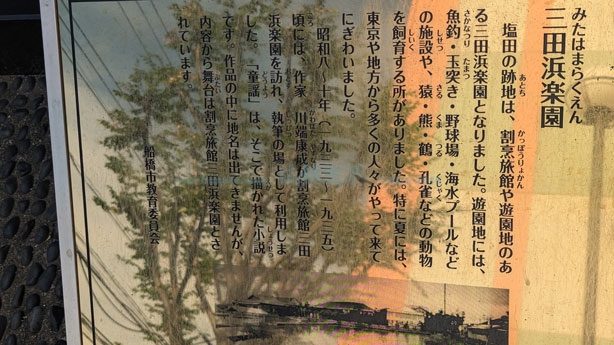 みたはまらくえん
三田浜楽園
塩田の跡地は、割烹旅館や遊園地のあ
る三田浜楽園となりました。遊園地には、
魚釣・玉突き・野球場・海水プールなど
の施設や、猿・熊・鶴・孔雀などの動物
を飼育する所がありました。特に夏には、
東京や地方から多くの人々がやって来て
にぎわいました。
昭和八~十年(一九三三~一九三五)
頃には、作家 川端康成が割烹旅館三田
浜楽園を訪れ、執筆の場として利用しま
した。「童謡」は、そこで描かれた小説
です。作品の中に地名は出てきませんが、
内容から舞台は割烹旅館三田浜楽園とさ
れています。
船橋市教育委員会